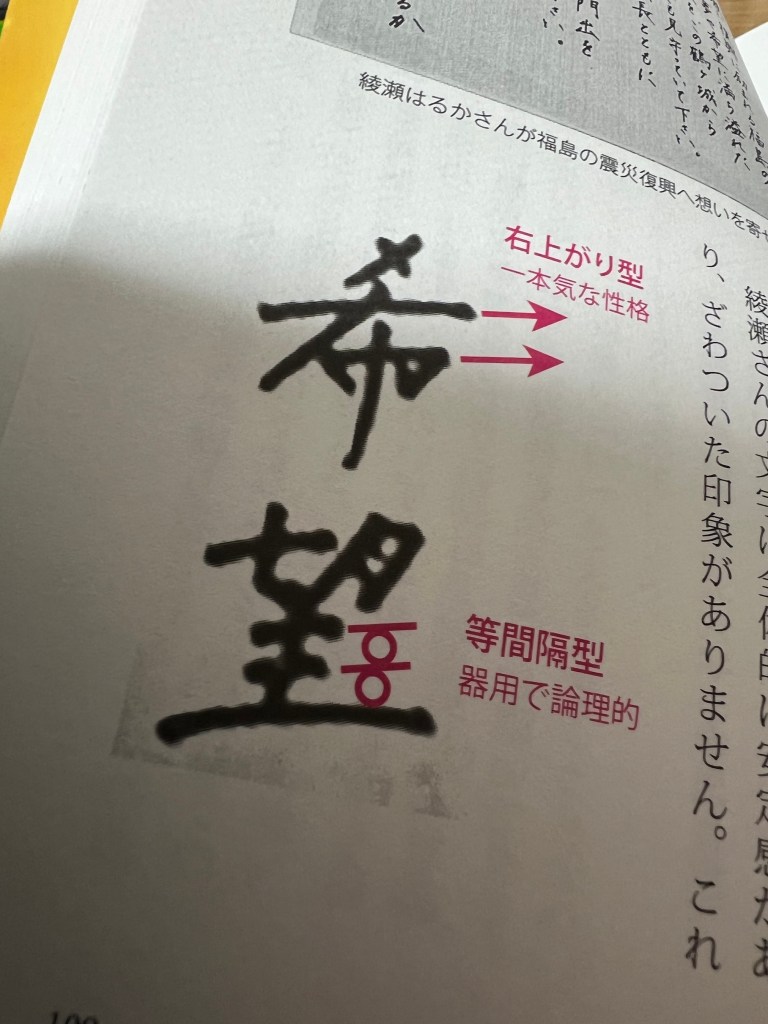 門出を
長とともに
るか
綾瀬はるかさんが福島の震災復興へ想いを寄せ
希望
右上がり型
一本気な性格
等間隔型
器用で論理的
綾瀬さんの文字は全体的に安定感があ
り、ざわついた印象がありません。これ